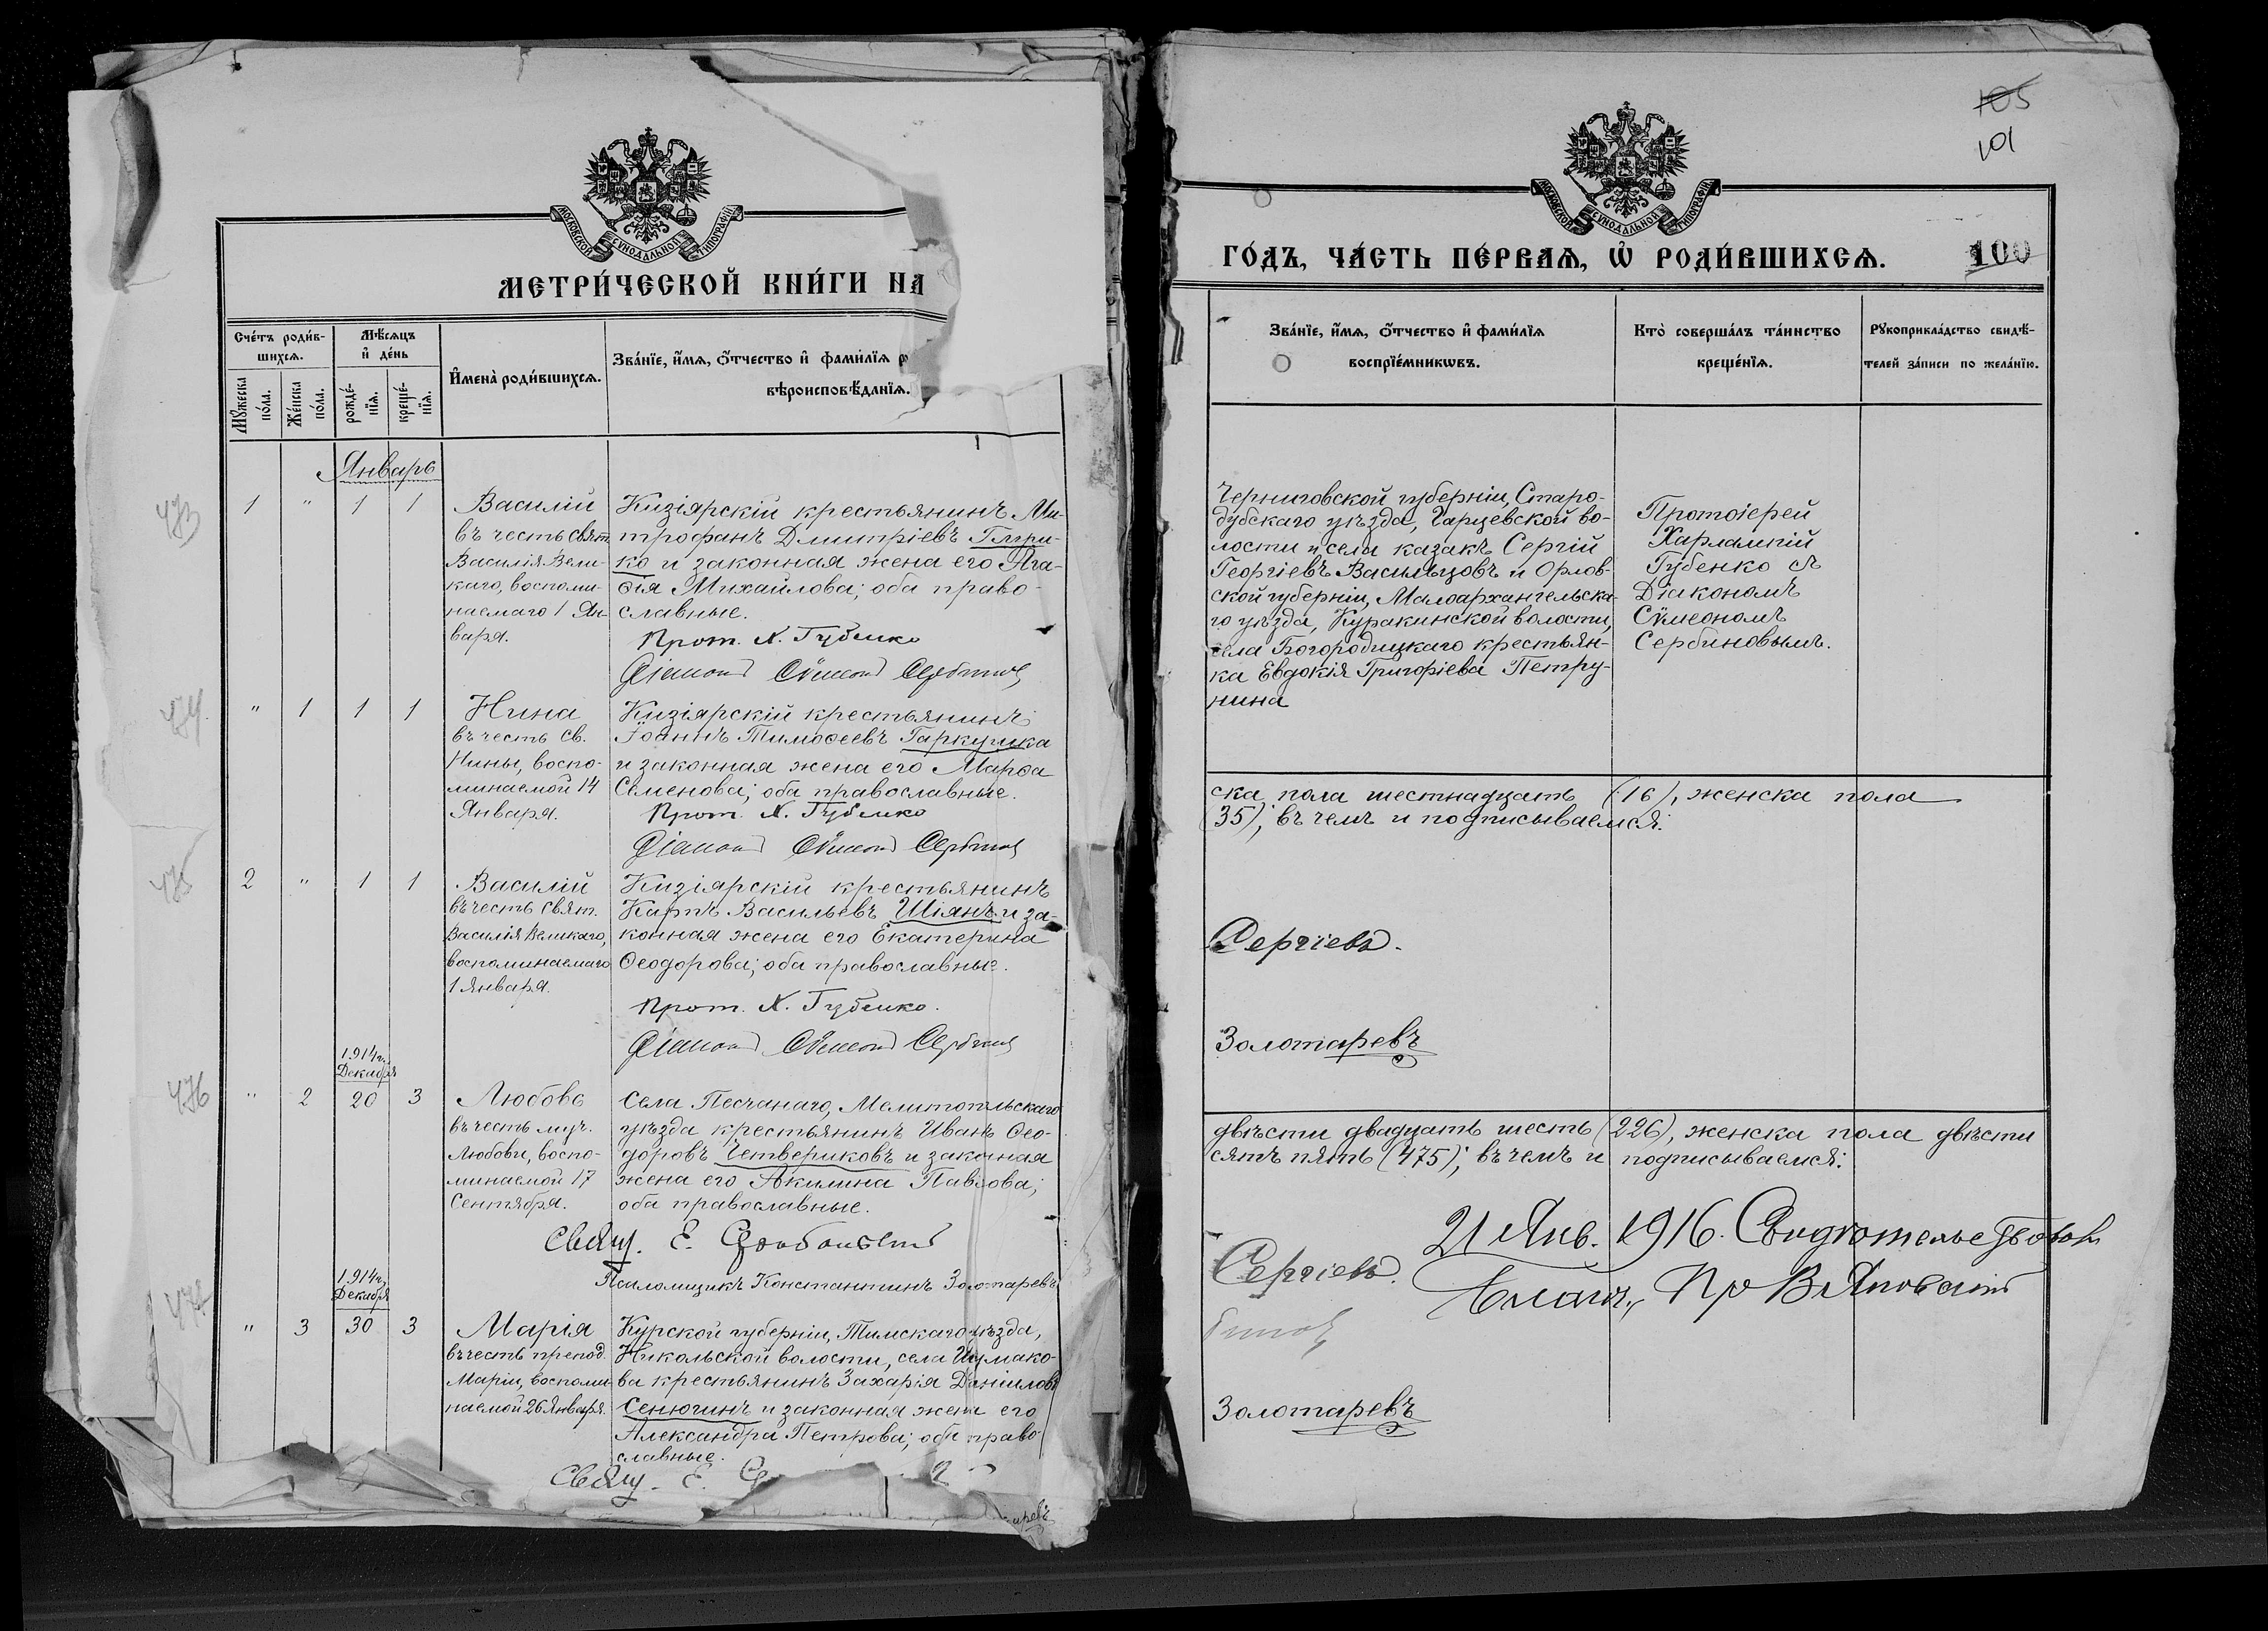 МОСКОВСКОЙ СѴНОДАЛЬНОЙ ТИПОГРАФІИ
МЕТРИ́ЧЕСКОЙ КНИ́ГИ НА
Сче́тъ роди́в-
шихсѧ.
Мѣ́сѧцъ
и҆ де́нь
И҆мена̀ роди́вшихсѧ.
Зва́нїе, и҆́мѧ, ѻ҆́тчество и҆ фами́лїѧ
вѣроисповѣ́данїѧ.
Мꙋ́жеска по́ла.
Же́нска по́ла.
рожде́-
нїѧ.
креще́-
нїѧ.
Январь
473
1 " 1 1
Василій
въ честь свят.
Василія Вели-
каго, воспоми-
наемаго 1 Ян-
варя.
Кизіярскій крестьянинъ Ми-
трофанъ Дмитріевъ
ко и законная жена его Ага-
ѳія Михайлова; оба право-
славные.
Прот. Х. Губенко
Діаконъ Сѵмеонъ Сербиновъ
474
" 1 1 1
Нина
въ честь св.
Нины, воспо-
минаемой 14
Января.
Кизіярскій крестьянинъ
Іоаннъ Тимоѳеевъ Гаркуша
и законная жена его Марѳа
Семенова; оба православные.
Прот. Х. Губенко
Діаконъ Сѵмеонъ Сербиновъ
475
2 " 1 1
Василій
въ честь свят.
Василія Великаго,
воспоминаемаго
1 Января.
Кизіярскій крестьянинъ
Карпъ Васильевъ Шіянъ и за-
конная жена его Екатерина
Ѳеодорова; оба православные.
Прот. Х. Губенко.
Діаконъ Сѵмеонъ Сербиновъ
476
1914 г.
Декабря
" 2 20 3
Любовь
въ честь муч.
Любови, воспо-
минаемой 17
Сентября.
Села Песчанаго, Мелитопольскаго
уѣзда крестьянинъ Иванъ Ѳео-
доровъ Четвериковъ и законная
жена его Акилина Павлова;
оба православные.
Свящ. Е.
Псаломщикъ Константинъ Золотаревъ
477
1914 г.
Декабря
" 3 30 3
Марія
въ честь препод.
Маріи, воспоми-
наемой 26 Января.
Курской губерніи, Тимскаго уѣзда,
Никольской волости, села Шумако-
ва крестьянинъ Захарія Даніиловъ
Сенюгинъ и законная жена его
Александра Петрова; оба право-
славные.
Свящ. Е.
аревъ
105
101
МОСКОВСКОЙ СѴНОДАЛЬНОЙ ТИПОГРАФІИ
ГО́ДЪ, ЧА́СТЬ ПЕ́РВАѦ, Ѡ҆ РОДИ́ВШИХСѦ.
100
Зва́нїе, и҆́мѧ, ѻ҆́тчество и҆ фами́лїѧ
воспрїе́мникѡвъ.
Кто̀ соверша́лъ та́инство
креще́нїѧ.
Рꙋкоприкла́дство свидѣ́-
телей за́писи по жела́нїю.
Черниговской губерніи, Старо-
дубскаго уѣзда, Гарцевской во-
лости и села казакъ Сергій
Георгіевъ Васильцовъ и Орлов-
ской губерніи, Малоархангельска-
го уѣзда, Куракинской волости,
села Богородицкаго крестьян-
ка Евдокія Григоріева Петру-
нина
Протоіерей
Харлампій
Губенко съ
Діакономъ
Сѵмеономъ
Сербиновымъ.
ска пола шестнадцать (16), женска пола
35); въ чемъ и подписываемся:
Сергіевъ.
Золотаревъ
двѣсти двадцать шесть (226), женска пола двѣсти
сятъ пять (475); въ чемъ и подписываемся:
21 Янв. 1916. Свидѣтельствовалъ
Благоч., Пр В Яновскій
Сергіевъ.
биновъ
Золотаревъ